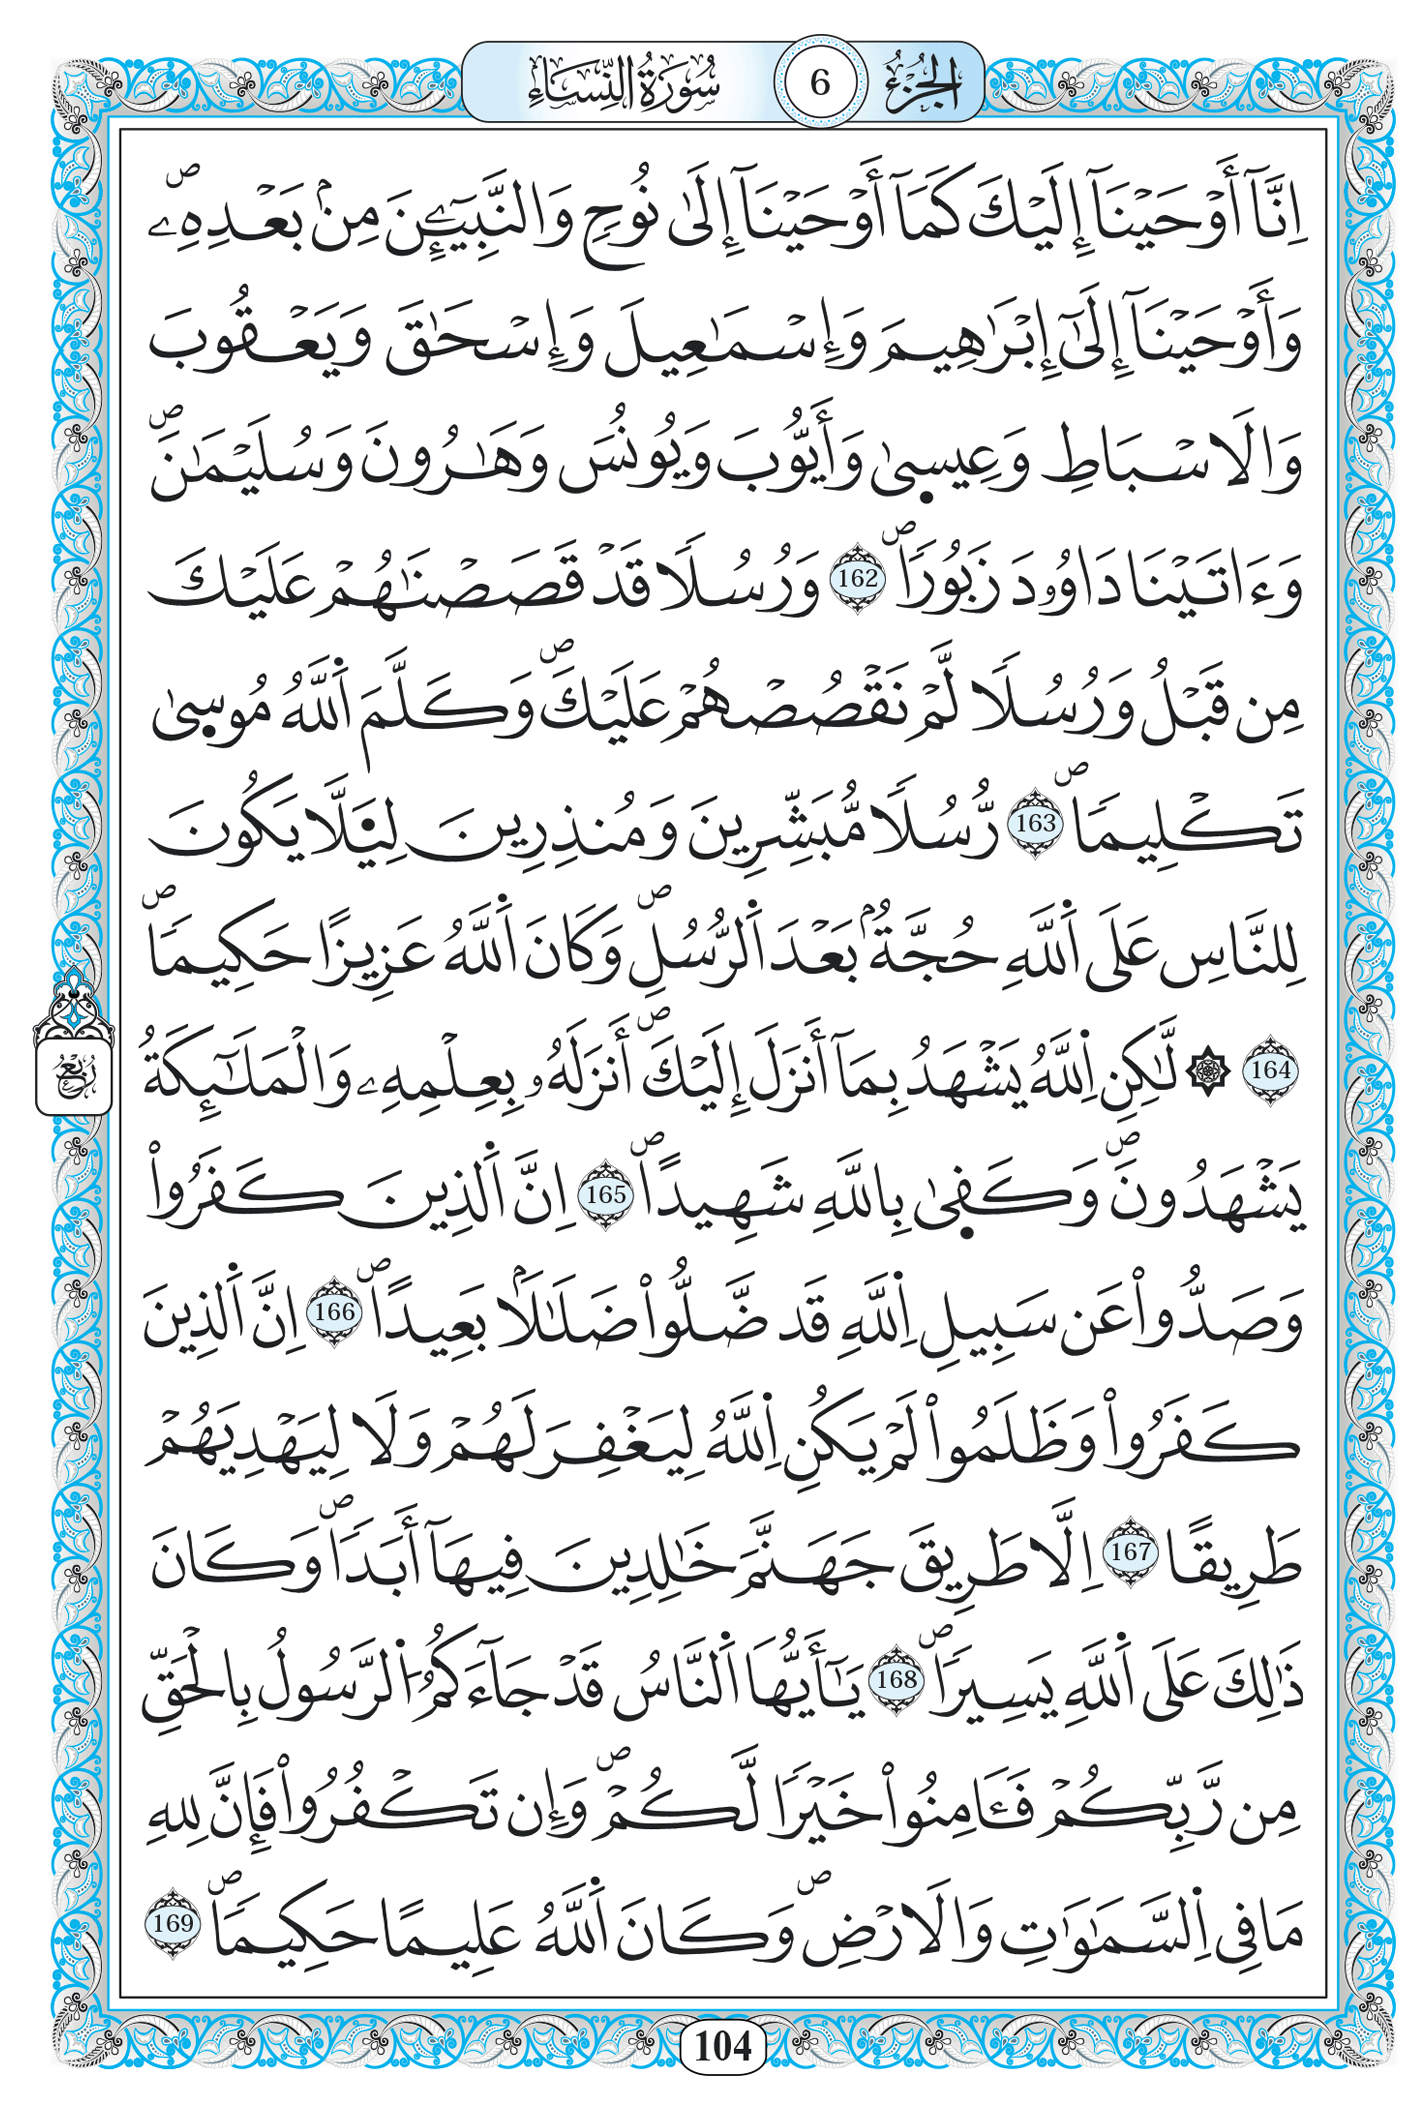 الجزء 6 سورة النساء
اِنَّآ أَوْحَيْنَآ إِلَيْكَ كَمَآ أَوْحَيْنَآ إِلَىٰ نُوحٖ وَالنَّبِيٓـِٕۧنَ مِنۢ بَعْدِهِۦۖ
وَأَوْحَيْنَآ إِلَىٰٓ إِبْرَٰهِيمَ وَإِسْمَٰعِيلَ وَإِسْحَٰقَ وَيَعْقُوبَ
وَالَاسْبَاطِ وَعِيسىٰ وَأَيُّوبَ وَيُونُسَ وَهَٰرُونَ وَسُلَيْمَٰنَۖ
وَءَاتَيْنَا دَاوُۥدَ زَبُورٗاۖ 162 وَرُسُلٗا قَدْ قَصَصْنَٰهُمْ عَلَيْكَ
مِن قَبْلُ وَرُسُلٗا لَّمْ نَقْصُصْهُمْ عَلَيْكَۖ وَكَلَّمَ اَ۬للَّهُ مُوسىٰ
تَكْلِيمٗاۖ 163 رُّسُلٗا مُّبَشِّرِينَ وَمُنذِرِينَ لِيَ۬لَّا يَكُونَ
لِلنَّاسِ عَلَى اَ۬للَّهِ حُجَّةُۢ بَعْدَ اَ۬لرُّسُلِۖ وَكَانَ اَ۬للَّهُ عَزِيزًا حَكِيمٗاۖ
164 ۞ لَّٰكِنِ اِ۬للَّهُ يَشْهَدُ بِمَآ أَنزَلَ إِلَيْكَۖ أَنزَلَهُۥ بِعِلْمِهِۦ وَالْمَلَٰٓئِكَةُ
يَشْهَدُونَۖ وَكَفىٰ بِاللَّهِ شَهِيدًاۖ 165 اِنَّ اَ۬لذِينَ كَفَرُواْ
وَصَدُّواْ عَن سَبِيلِ اِ۬للَّهِ قَد ضَّلُّواْ ضَلَٰلَاۢ بَعِيدًاۖ 166 اِنَّ اَ۬لذِينَ
كَفَرُواْ وَظَلَمُواْ لَمْ يَكُنِ اِ۬للَّهُ لِيَغْفِرَ لَهُمْ وَلَا لِيَهْدِيَهُمْ
طَرِيقًا 167 اِلَّا طَرِيقَ جَهَنَّمَ خَٰلِدِينَ فِيهَآ أَبَدٗاۖ وَكَانَ
ذَٰلِكَ عَلَى اَ۬للَّهِ يَسِيرٗاۖ 168 يَٰٓأَيُّهَا اَ۬لنَّاسُ قَدْ جَآءَكُمُ اُ۬لرَّسُولُ بِالْحَقِّ
مِن رَّبِّكُمْ فَـَٔامِنُواْ خَيْرٗا لَّكُمْۖ وَإِن تَكْفُرُواْ فَإِنَّ لِلهِ
مَا فِي اِ۬لسَّمَٰوَٰتِ وَالَارْضِۖ وَكَانَ اَ۬للَّهُ عَلِيمًا حَكِيمٗاۖ 169
ربع
104